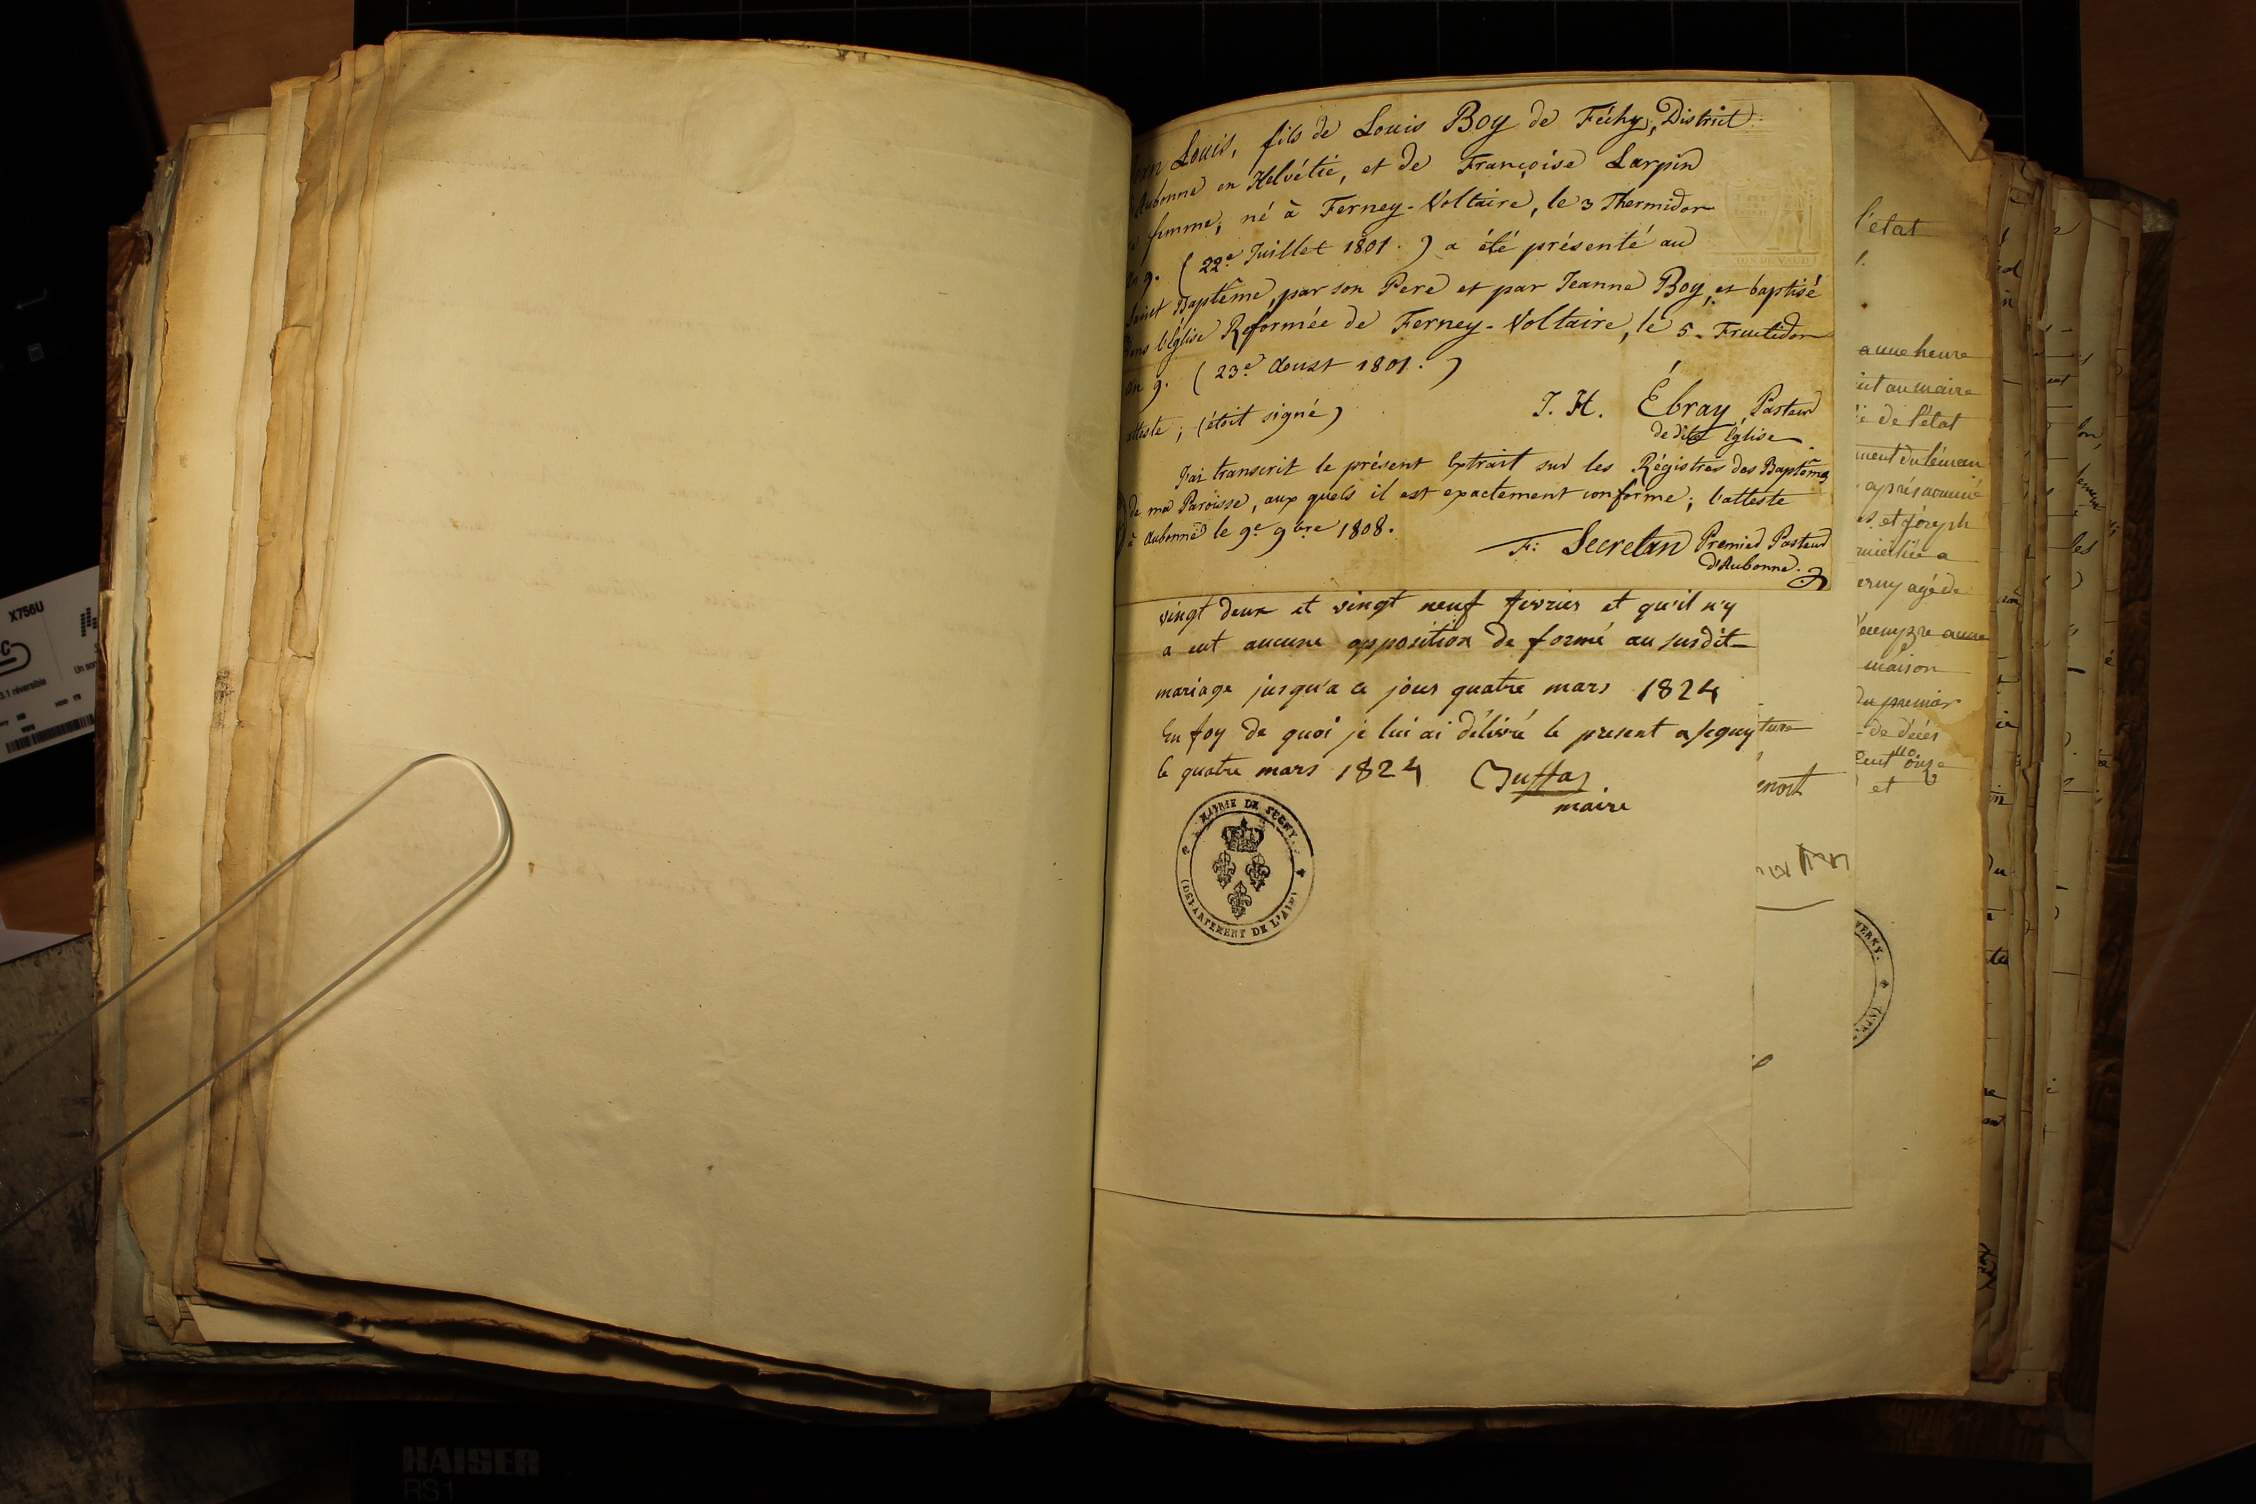 Louis, fils de Louis Boy de Féchy, District
Aubonne en Helvétie, et de Françoise Larpin
femme, né à Ferney-Voltaire, le 3 Thermidor
9. (22e Juillet 1801.) a été présenté au
Baptême, par son Pere et par Jeanne Boy, et baptisé
l'Église Réformée de Ferney-Voltaire, le 5. Fructidor
an 9. (23e Aoust 1801.)
atteste; (étoit signé) J. H. Ébray Pasteur
de dite Église.
J'ai transcrit le présent Extrait sur les Régistres des Baptême
de ma Paroisse, aux quels il est exactement conforme; l'atteste
à Aubonne le 9e 9bre 1808.
F: Secretan Premier Pasteur
d'Aubonne.
vingt deux et vingt neuf fevrier et qu'il n'y
a eut aucune opposition de formé au susdit
mariage jusqu'a ce jour quatre mars 1824
En foy de quoi je lui ai délivré le present a segny
le quatre mars 1824
maire
MAIRIE DE SEGNY.
(DÉPARTEMENT DE L'AIN)
l'état
a une heure
au maire
de l'état
ment du léman
et joseph
agé de
maison
du premier
de décès
cent onze
et
TON DE VAUD
X756U
3.1 réversible
KAISER
RS1